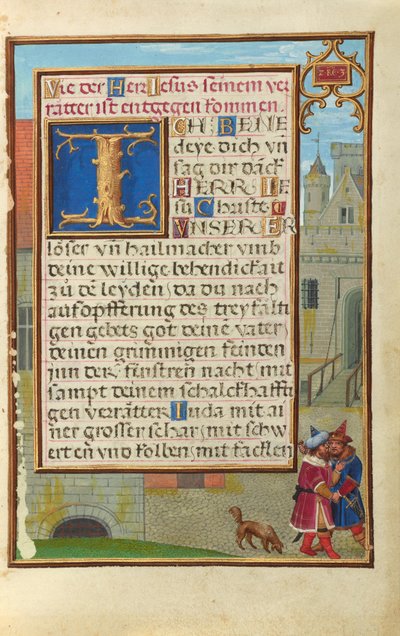 2 RE 3
Vie der Herr Iesus seinem ver
rätter ist entgegen kommen.
ICH BENE
deye dich vn̄
sag dir dāck
HERR IE
su Christe
VNSER ER
löser vn̄ hailmacher vmb
deine willige behendickait
zů dē leyden, da du nach
aufopfferung des treyfälti
gen gebets got deinē vater,
deinen grimmigen feinden
inn der finstren nacht, mit
sampt deinem schalckhaffti
gen verrätter Iuda mit ai
ner grosser schar, mit schw
erten vnd kolben, mit facklen